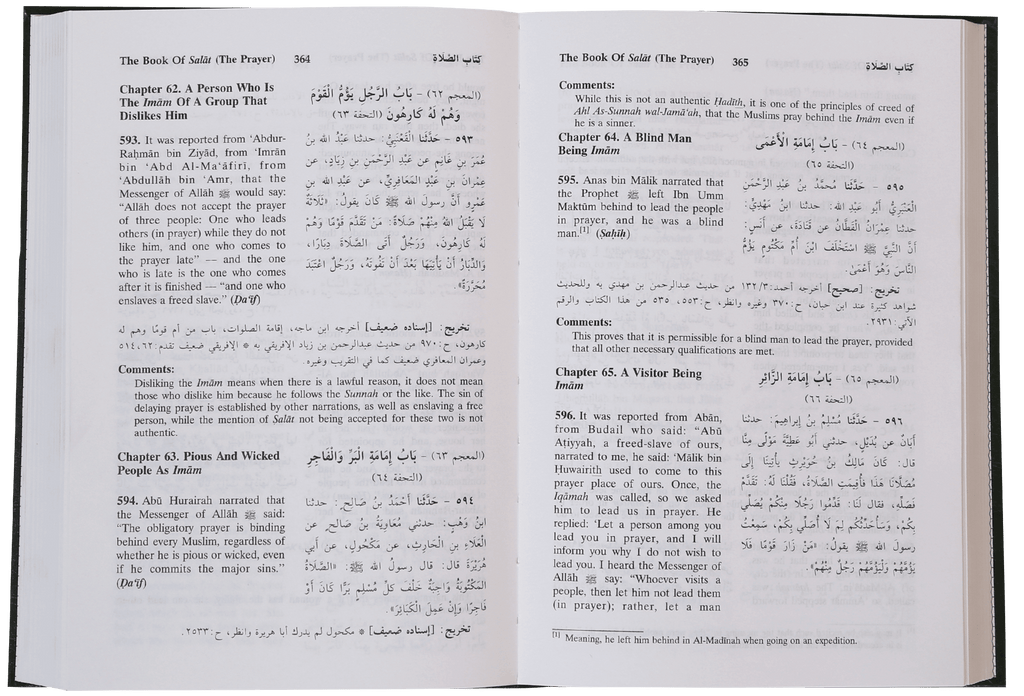 The Book Of Salāt (The Prayer) 364 كتاب الصلاة
Chapter 62. A Person Who Is
The Imām Of A Group That
Dislikes Him
(المعجم ٦٢) - بَابُ الرَّجُلِ يَؤُمُّ الْقَوْمَ
وَهُمْ لَهُ كَارِهُونَ (التحفة ٦٣)
593. It was reported from ‘Abdur-
Raḥmān bin Ziyād, from ‘Imrān
bin ‘Abd Al-Ma‘āfirī, from
‘Abdullāh bin ‘Amr, that the
Messenger of Allāh ﷺ would say:
“Allāh does not accept the prayer
of three people: One who leads
others (in prayer) while they do not
like him, and one who comes to
the prayer late” — and the one
who is late is the one who comes
after it is finished — “and one who
enslaves a freed slave.” (Ḍa‘īf)
٥٩٣ - حَدَّثَنا الْقَعْنَبِيُّ: حدثنا عَبْدُ الله بنُ
عُمَرَ بنِ غَانِمٍ عن عَبْدِ الرَّحْمٰنِ بنِ زِيَادٍ، عن
عِمْرَانَ بنِ عَبْدٍ المَعَافِرِيِّ، عن عَبْدِ الله بنِ
عَمْرٍو أنَّ رسولَ الله ﷺ كَانَ يقولُ: «ثَلَاثَةٌ
لَا يَقْبَلُ الله مِنْهُمْ صَلَاةً: مَنْ تَقَدَّمَ قَوْمًا وَهُمْ
لَهُ كَارِهُونَ، وَرَجُلٌ أتَى الصَّلَاةَ دِبَارًا،
وَالدِّبَارُ أنْ يَأْتِيَهَا بَعْدَ أنْ تَفُوتَهُ، وَرَجُلٌ اعْتَبَدَ
مُحَرَّرَةً».
تخريج: [إسناده ضعيف] أخرجه ابن ماجه، إقامة الصلوات، باب من أم قومًا وهم له
كارهون، ح: ٩٧٠ من حديث عبدالرحمن بن زياد الإفريقي به * الإفريقي ضعيف تقدم: ٥١٤،٦٢
وعمران المعافري ضعيف كما في التقريب وغيره.
Comments:
Disliking the Imām means when there is a lawful reason, it does not mean
those who dislike him because he follows the Sunnah or the like. The sin of
delaying prayer is established by other narrations, as well as enslaving a free
person, while the mention of Ṣalāt not being accepted for these two is not
authentic.
Chapter 63. Pious And Wicked
People As Imām
(المعجم ٦٣) - بَابُ إِمَامَةِ الْبَرِّ وَالْفَاجِرِ
(التحفة ٦٤)
594. Abū Hurairah narrated that
the Messenger of Allāh ﷺ said:
“The obligatory prayer is binding
behind every Muslim, regardless of
whether he is pious or wicked, even
if he commits the major sins.”
(Ḍa‘īf)
٥٩٤ - حَدَّثَنا أَحْمَدُ بنُ صَالِحٍ: حدثنا
ابنُ وَهْبٍ: حدثني مُعَاوِيَةُ بنُ صَالِحٍ عن
الْعَلَاءِ بنِ الْحَارِثِ، عن مَكْحُولٍ، عن أبي
هُرَيْرَةَ قال: قال رسولُ الله ﷺ: «الصَّلَاةُ
المَكْتُوبَةُ وَاجِبَةٌ خَلْفَ كلِّ مُسْلِمٍ بَرًّا كَانَ أَوْ
فَاجِرًا وَإِنْ عَمِلَ الْكَبَائِرَ».
تخريج: [إسناده ضعيف] * مكحول لم يدرك أبا هريرة وانظر، ح: ٢٥٣٣.
The Book Of Salāt (The Prayer) 365 كتاب الصلاة
Comments:
While this is not an authentic Ḥadīth, it is one of the principles of creed of
Ahl As-Sunnah wal-Jamā‘ah, that the Muslims pray behind the Imām even if
he is a sinner.
Chapter 64. A Blind Man
Being Imām
(المعجم ٦٤) - بَابُ إِمَامَةِ الأَعْمَى
(التحفة ٦٥)
595. Anas bin Mālik narrated that
the Prophet ﷺ left Ibn Umm
Maktūm behind to lead the people
in prayer, and he was a blind
man.[1] (Ṣaḥīḥ)
٥٩٥ - حَدَّثَنا مُحَمَّدُ بنُ عَبْدِ الرَّحْمٰنِ
الْعَنْبَرِيُّ أَبُو عَبْدِ الله: حدثنا ابنُ مَهْدِيٍّ:
حدثنا عِمْرَانُ الْقَطَّانُ عن قَتَادَةَ، عن أَنَسٍ:
أَنَّ النَّبِيَّ ﷺ اسْتَخْلَفَ ابْنَ أُمِّ مَكْتُومٍ يَؤُمُّ
النَّاسَ وَهُوَ أَعْمَى.
تخريج: [صحيح] أخرجه أحمد: ٣/ ١٣٢ من حديث عبدالرحمن بن مهدي به وللحديث
شواهد كثيرة عند ابن حبان، ح: ٣٧٠ وغيره وانظر، ح: ٥٥٣، ٥٣٥ من هذا الكتاب والرقم
الآتي: ٢٩٣١.
Comments:
This proves that it is permissible for a blind man to lead the prayer, provided
that all other necessary qualifications are met.
Chapter 65. A Visitor Being
Imām
(المعجم ٦٥) - بَابُ إِمَامَةِ الزَّائِرِ
(التحفة ٦٦)
596. It was reported from Abān,
from Budail who said: “Abū
Aṭiyyah, a freed-slave of ours,
narrated to me, he said: ‘Mālik bin
Ḥuwairith used to come to this
prayer place of ours. Once, the
Iqāmah was called, so we asked
him to lead us in prayer. He
replied: ‘Let a person among you
lead you in prayer, and I will
inform you why I do not wish to
lead you. I heard the Messenger of
Allāh ﷺ say: “Whoever visits a
people, then let him not lead them
(in prayer); rather, let a man
٥٩٦ - حَدَّثَنا مُسْلِمُ بنُ إِبراهِيمَ: حدثنا
أَبَانُ عن بُدَيْلٍ، حدثني أَبُو عَطِيَّةَ مَوْلًى مِنَّا
قال: كَانَ مَالِكُ بنُ حُوَيْرِثٍ يَأْتِينَا إِلَى
مُصَلَّانَا هَذَا فَأُقِيمَتِ الصَّلَاةُ، فَقُلْنَا لَهُ: تَقَدَّمْ
فَصَلِّهْ، فقال لَنا: قَدِّمُوا رَجُلًا مِنْكُمْ يُصَلِّي
بِكُمْ، وَسَأُحَدِّثُكُم لِمَ لَا أُصَلِّي بِكُمْ، سَمِعْتُ
رسولَ الله ﷺ يقولُ: «مَنْ زَارَ قَوْمًا فَلَا
يَؤُمَّهُمْ وَلْيَؤُمَّهُمْ رَجُلٌ مِنْهُمْ».
[1] Meaning, he left him behind in Al-Madīnah when going on an expedition.